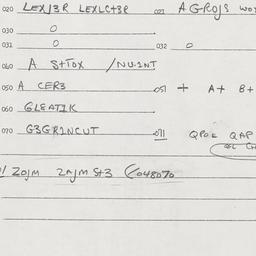 020 LEXJ3R LEXLCT3R 021 AGROJS
030 0
031 0 032 0
060 A STTOX /NU1NT
050 A CER3 051 + A+ B+
060 GLEATIK
070 G3GR1NCUT 071 QPOE QAP
ZOJM ZAJM St3 048070